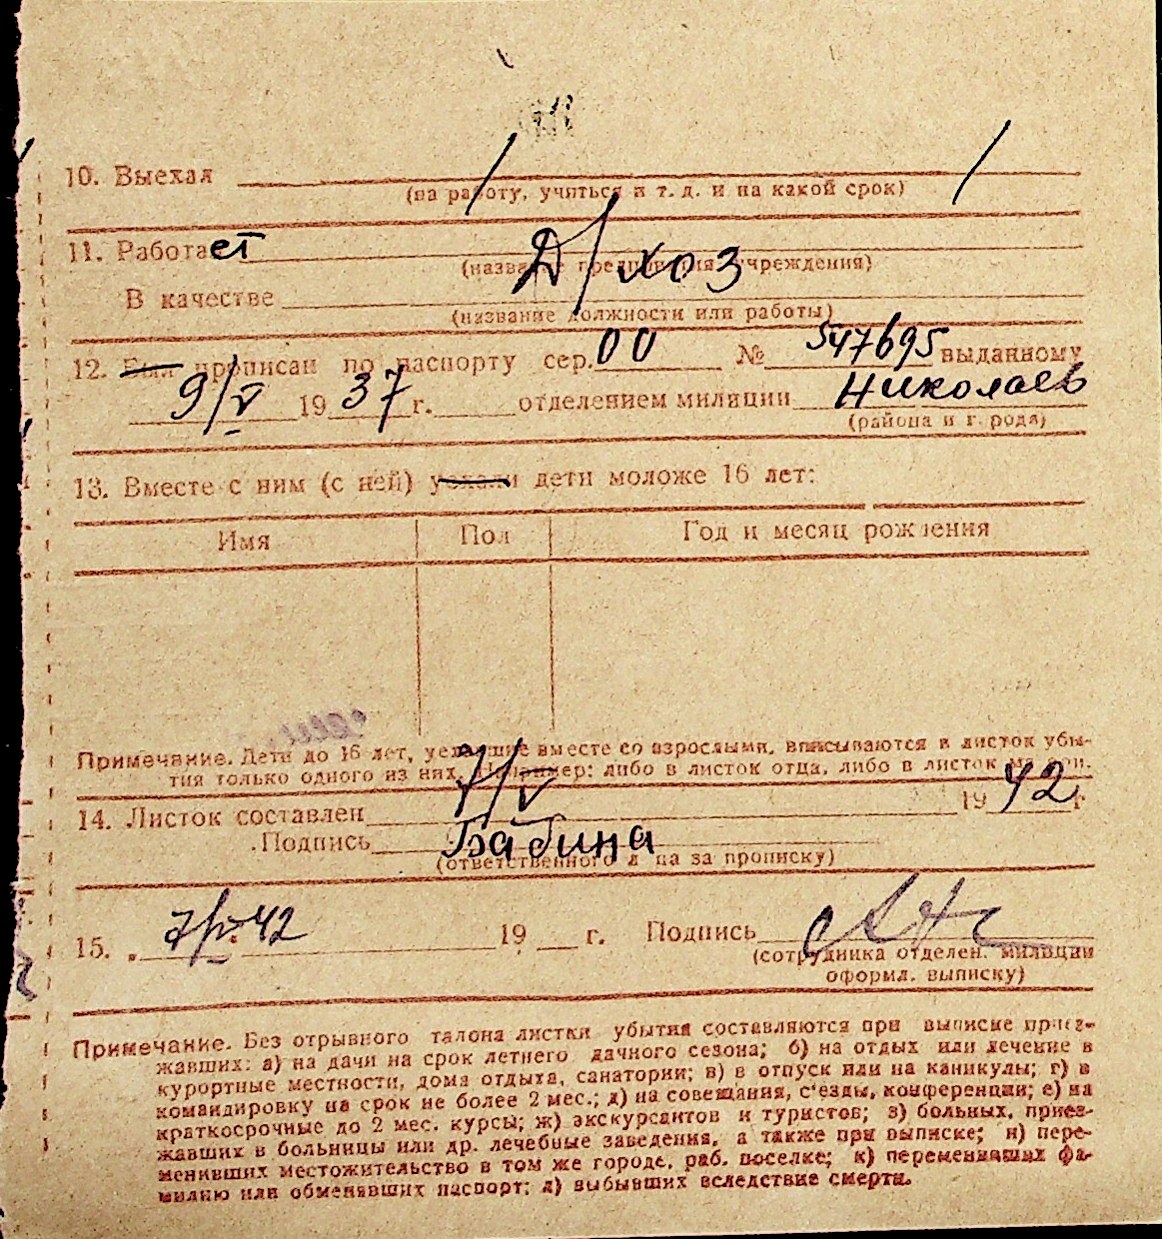 10. Выехал
(на работу, учиться и т. д. и на какой срок)
11. Работает Д/хоз
(название предприятия, учреждения)
В качестве
(название должности или работы)
12. Был прописан по паспорту сер. 00 № 547695 выданному
9/V 1937 г. отделением милиции Николаев
(района и г. рода)
13. Вместе с ним (с ней) уехали дети моложе 16 лет:
Имя Пол Год и месяц рождения
Примечание. Дети до 16 лет, уехавшие вместе со взрослыми, вписываются в листок убы-
тия только одного из них. Например: либо в листок отца, либо в листок матери.
14. Листок составлен 7/V 1942 г.
Подпись Бабина
(ответственного лица за прописку)
15. 7/V-42 19 г. Подпись
(сотрудника отделен. милиции
оформл. выписку)
Примечание. Без отрывного талона листки убытия составляются при выписке приез-
жавших: а) на дачи на срок летнего дачного сезона; б) на отдых или лечение в
курортные местности, дома отдыха, санатории; в) в отпуск или на каникулы; г) в
командировку на срок не более 2 мес.; д) на совещания, с'езды, конференции; е) на
краткосрочные до 2 мес. курсы; ж) экскурсантов и туристов; з) больных, приез-
жавших в больницы или др. лечебные заведения, а также при выписке; и) пере-
менивших местожительство в том же городе, раб. поселке; к) переменивших фа-
милию или обменявших паспорт; л) выбывших вследствие смерти.